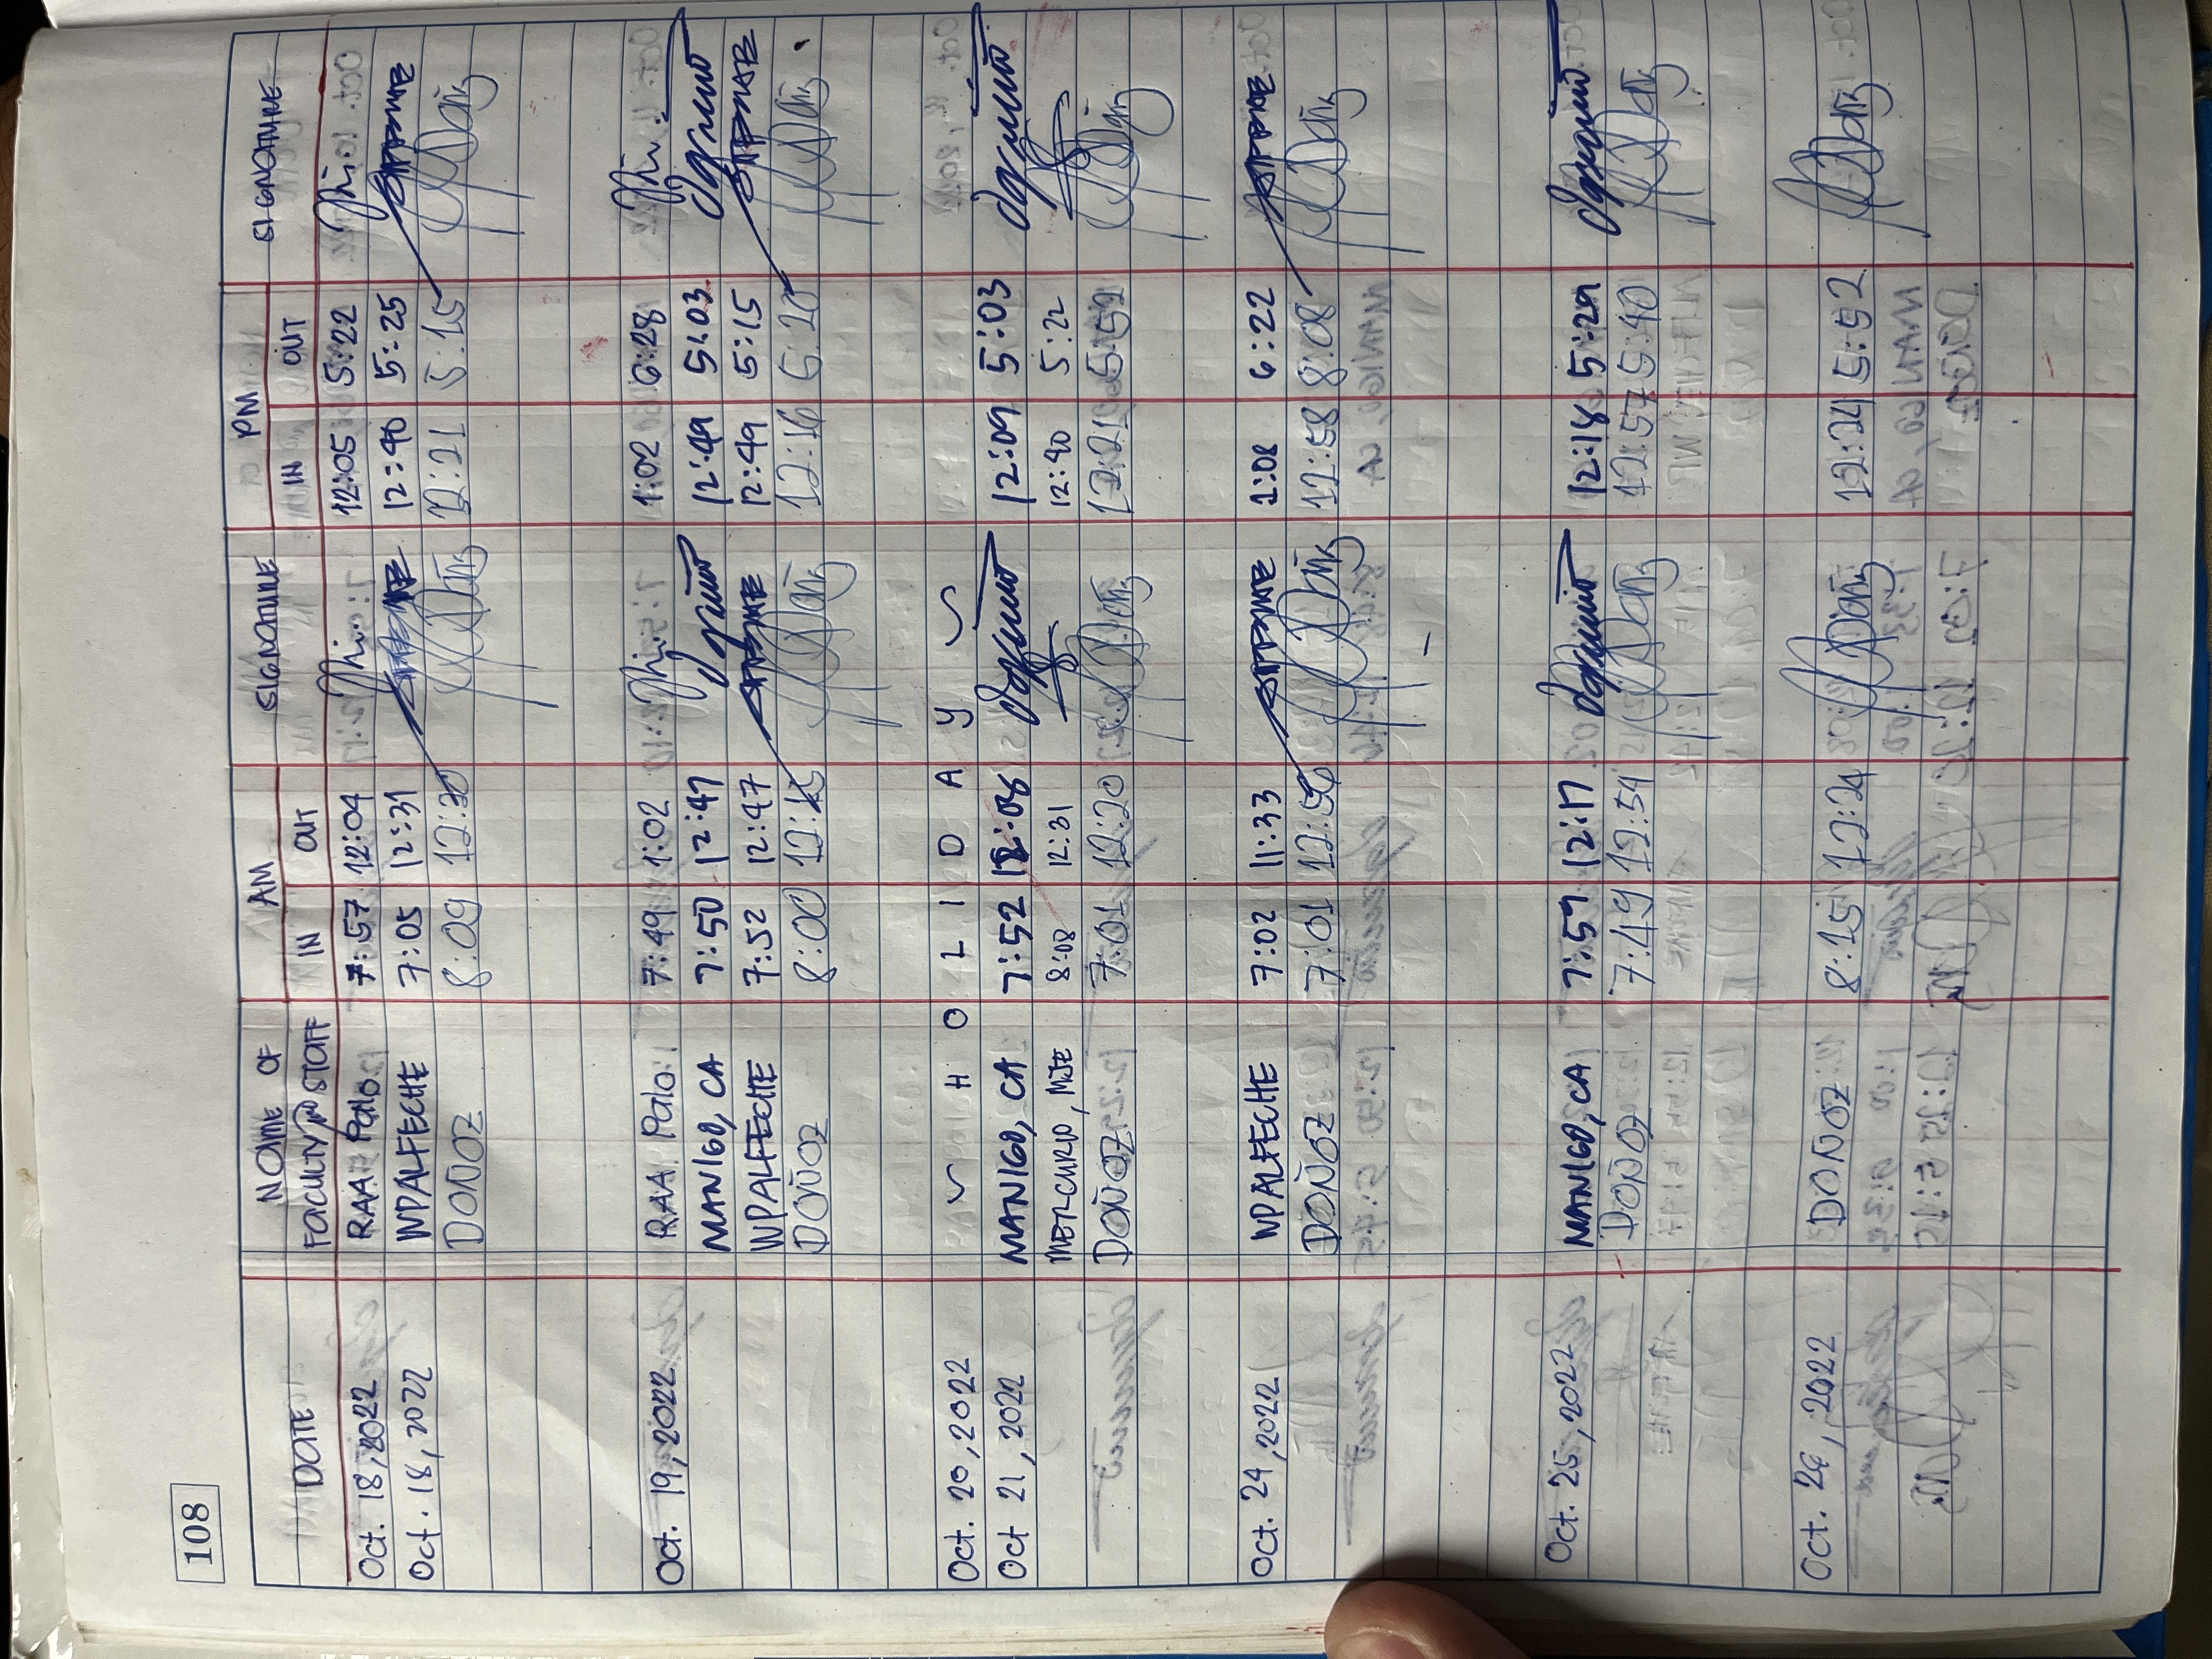 108
DATE NAME OF FACULTY AND STAFF AM IN OUT SIGNATURE PM IN OUT SIGNATURE
Oct. 18, 2022 RAA Palo 7:57 12:04 12:05 5:22
Oct. 18, 2022 WPALFECHE 7:05 12:31 12:40 5:25
DOÑOZ 8:09 12:20 12:21 5:15
Oct. 19, 2022 RAA Palo 7:49 1:02 1:02 6:28
MANIGO, CA 7:50 12:47 12:49 5:03
WPALFECHE 7:52 12:47 12:49 5:15
DOÑOZ 8:00 12:15 12:16 6:20
Oct. 20, 2022 ~ H O L I D A Y ~
Oct 21, 2022 MANIGO, CA 7:52 12:08 12:09 5:03
METR-CURIO, MJE 8:08 12:31 12:40 5:22
DOÑOZ 7:01 12:20 12:21 5:52
Oct. 24, 2022 WPALFECHE 7:02 11:33 1:08 6:22
DOÑOZ 7:01 12:56 12:58 8:08
Oct. 25, 2022 MANIGO, CA 7:59 12:17 12:18 5:29
DOÑOZ 7:49 12:54 12:57 5:40
Oct. 26, 2022 DOÑOZ 8:15 12:24 12:24 5:52